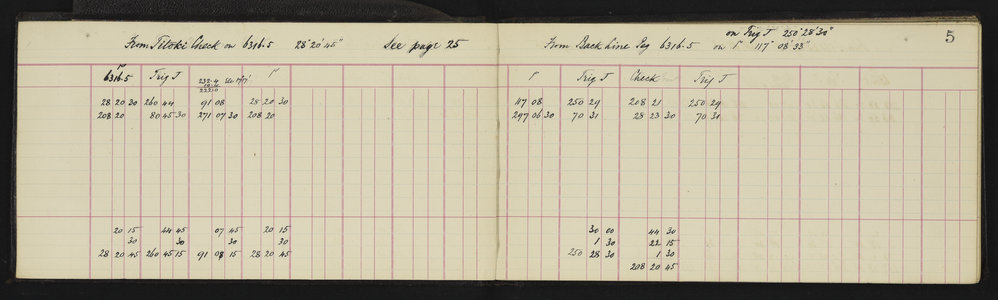 From Titoki Check on 6316.5 28° 20' 45" See page 25
Γ
6316.5 Trig J 232.4 Γ
222.0
28 20 30 260 44 91 08 28 20 30
208 20 80 45 30 271 07 30 208 20
20 15 44 45 07 45 20 15
30 30 30 30
28 20 45 260 45 15 91 08 15 28 20 45
on Trig J 250° 28' 30"
5
From Back Line Peg 6316.5 on Γ 117° 08' 33"
Γ Trig J Check Trig J
117 08 250 29 208 21 250 29
297 06 30 70 31 28 23 30 70 31
30 00 44 30
1 30 22 15
250 28 30 1 30
208 20 45